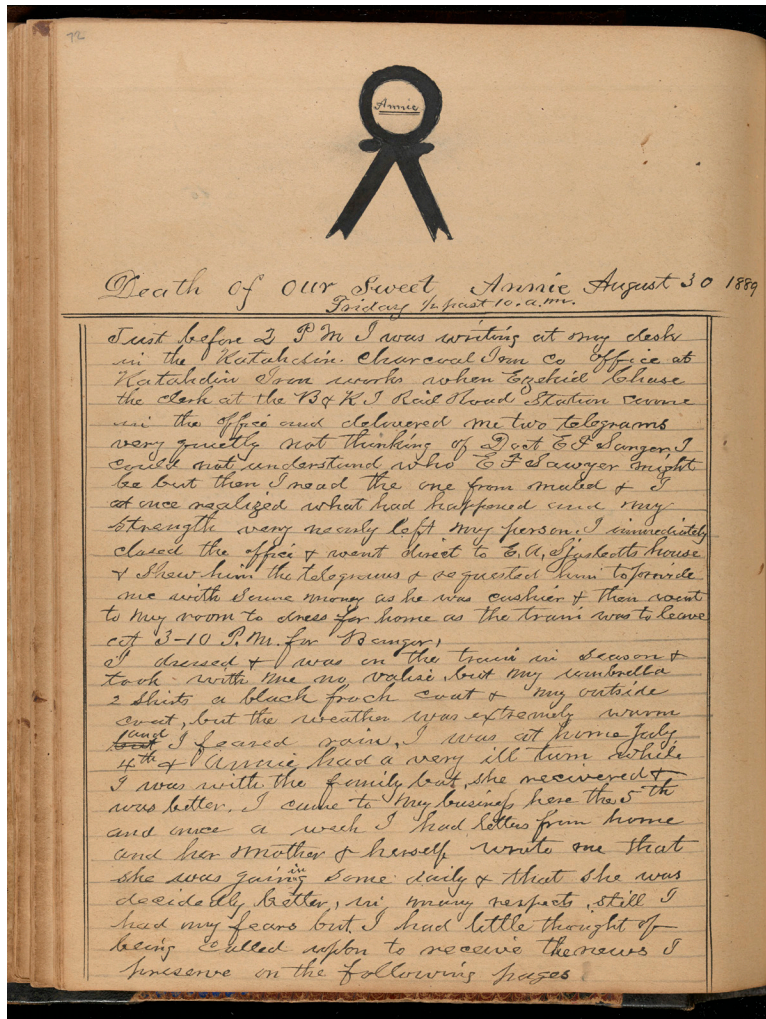 72
Annie
Death of our Sweet Annie August 30 1889
Friday 1/2 past 10. a.m.
Just before 2 P M I was writing at my desk
in the Katahdin. Charcoal Iron Co office at
Katahdin Iron works when Ezekiel Chase
the clerk at the B & K I Rail Road Station came
in the office and delivered me two telegrams
very quietly not thinking of Doct E F Sanger, I
could not understand who E F Sawyer might
be but then I read the one from & I
at once realized what had happened and my
strength very nearly left my person. I immediately
closed the office & went direct to E. A. Sjostedts house
& shew him the telegrams & requested him to provide
me with some money as he was cashier & then went
to my room to dress for home as the train was to leave
at 3-10 P.M. for Bangor,
I dressed & was on the train in season &
took with me no valise but my umbrella
2 shirts a black frock coat & my outside
coat, but the weather was extremely warm
and
but I feared rain, I was at home July
4th & Annie had a very ill turn while
I was with the family but, she recivered &
was better. I came to my business here the 5th
and once a week I had letters from home
and her mother & herself wrote me that
she was gaining some daily & that she was
decidedly better, in many respects, still I
had my fears but I had little thought of
being called upon to receive the news I
preserve on the following pages